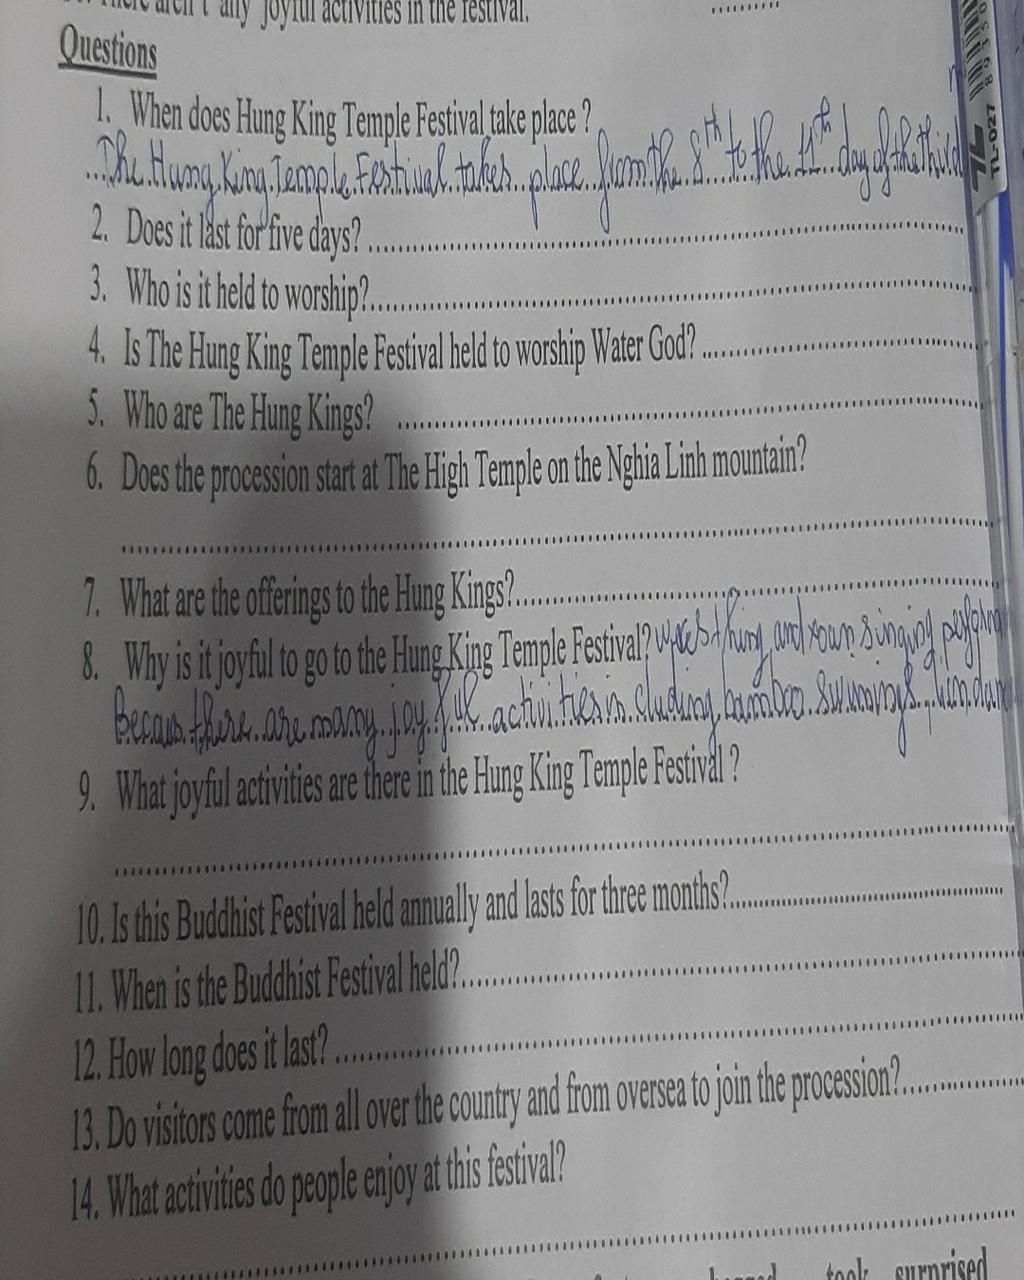 There aren't any joyful activities in the festival. ..........
Questions
1. When does Hung King Temple Festival take place ?
The Hung King Temple Festival takes place from the 8th to the 11th day of the third
2. Does it last for five days? ..........
3. Who is it held to worship?..........
4. Is The Hung King Temple Festival held to worship Water God? ..........
5. Who are The Hung Kings? ..........
6. Does the procession start at The High Temple on the Nghia Linh mountain?
..........
7. What are the offerings to the Hung Kings?..........
8. Why is it joyful to go to the Hung King Temple Festival? wresthing and xoan singing
Becaus there are many joyful activities in cluding bamboo swimings, lion
9. What joyful activities are there in the Hung King Temple Festival ?
..........
10. Is this Buddhist Festival held annually and lasts for three months?..........
11. When is the Buddhist Festival held?..........
12. How long does it last? ..........
13. Do visitors come from all over the country and from oversea to join the procession?..........
14. What activities do people enjoy at this festival?
..........
took surprised
TL-027